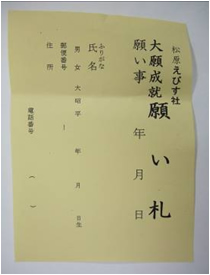 松原えびす社
大願成就願い札
願い事 年 月 日
ふりがな
氏名
男 女 大 昭 平 年 月 日生
郵便番号 ー
住所
電話番号 ( )